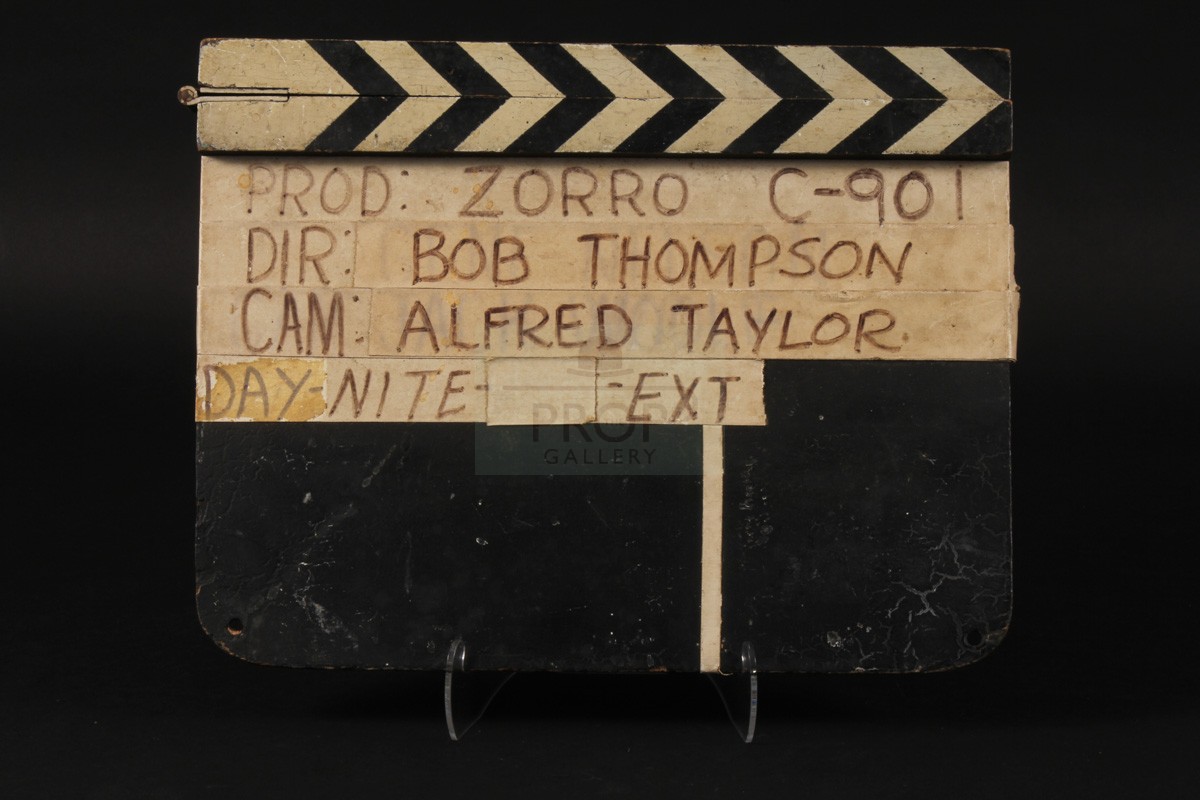 PROD: ZORRO C-901
DIR: BOB THOMPSON
CAM: ALFRED TAYLOR.
DAY-NITE- -EXT
PROP
GALLERY